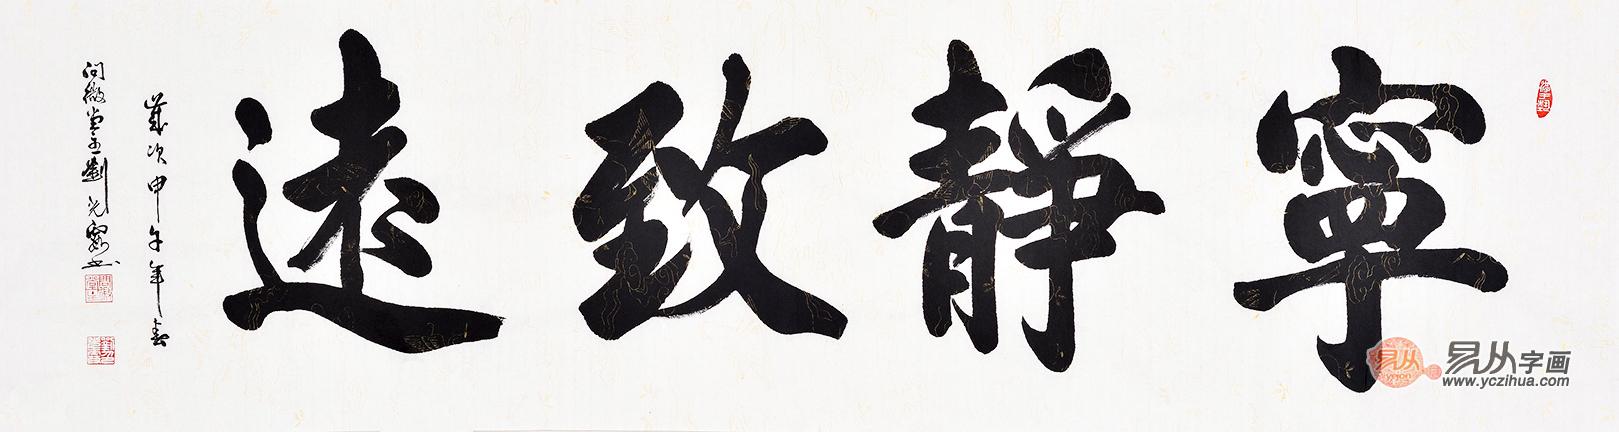 寧靜致遠
歲次甲午年春
問微堂主劉光霞書
易从字画
www.yczihua.com
易从
yicon